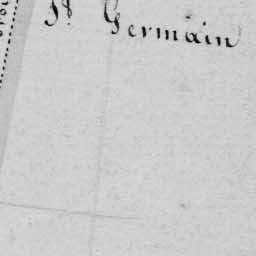 St Germain